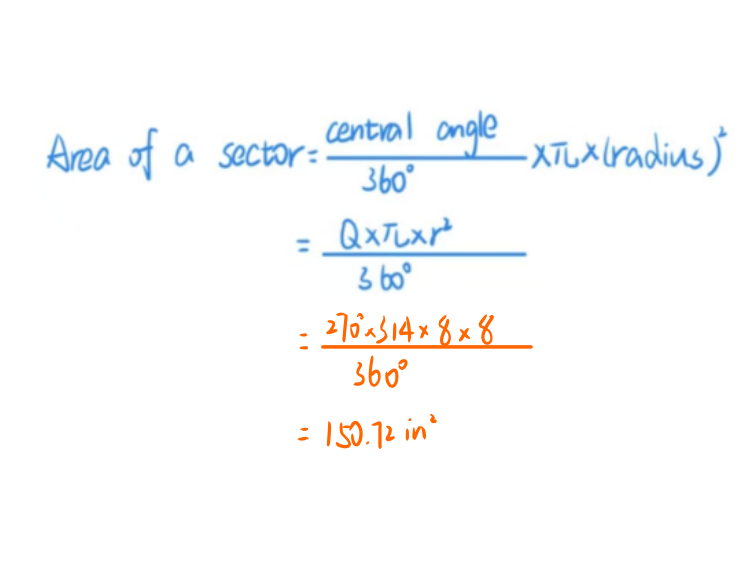 Area of a sector = central angle / 360° × π × (radius)²
= Q × π × r² / 360°
= 270° × 314 × 8 × 8 / 360°
= 150.72 in²